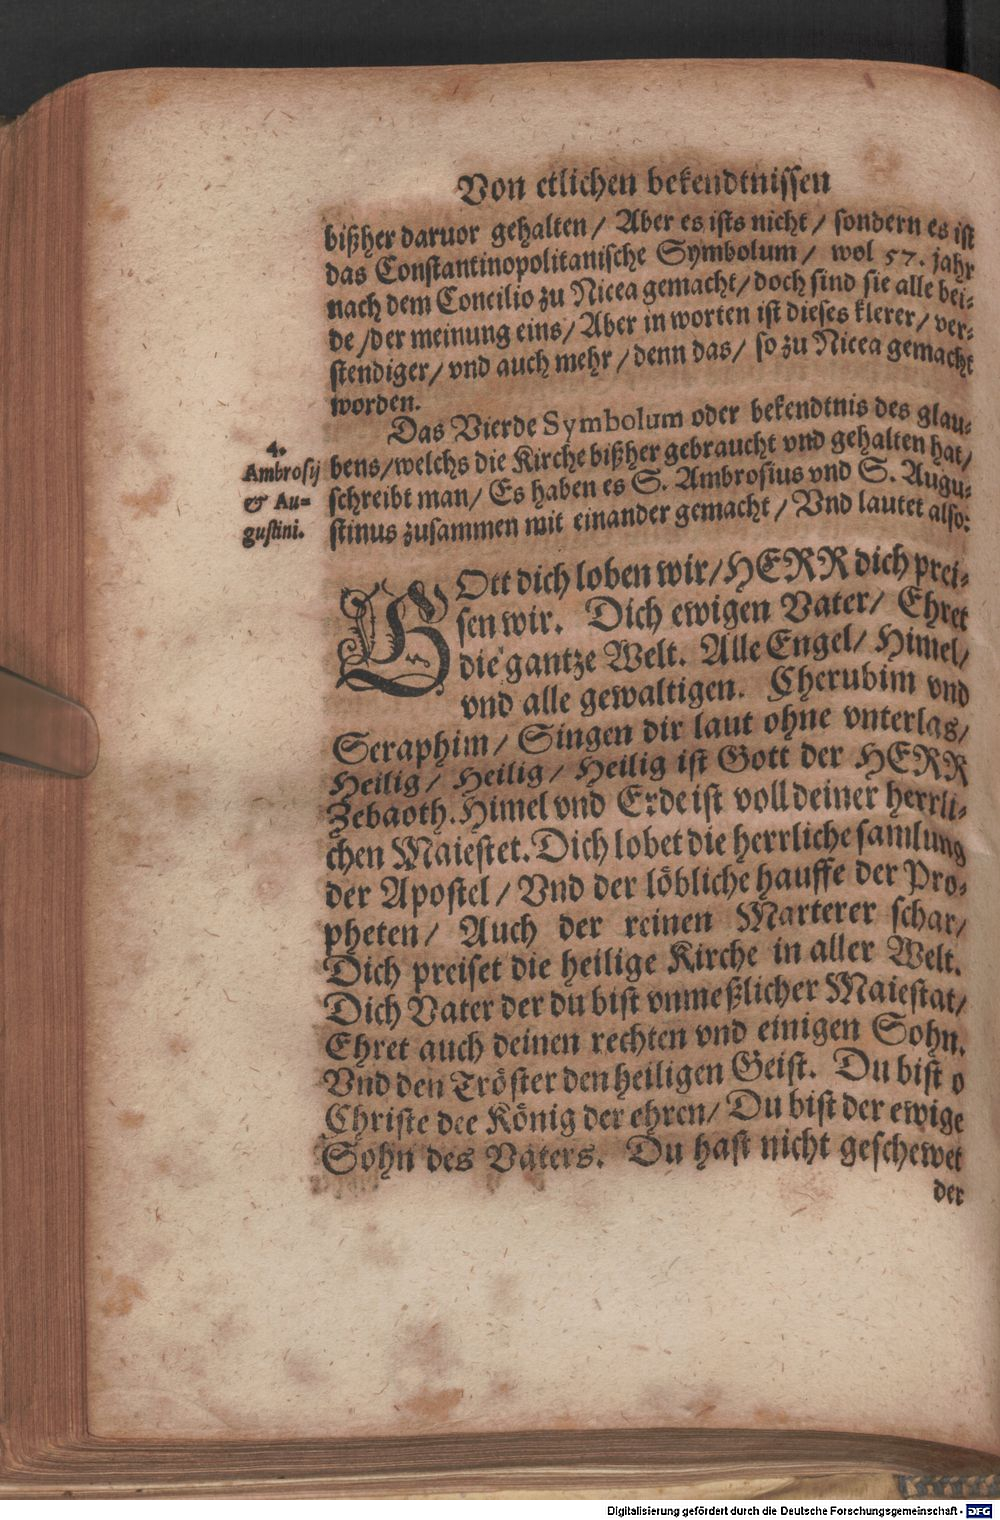 Von etlichen bekendtnissen
bißher daruor gehalten / Aber es ists nicht / sondern es ist
das Constantinopolitanische Symbolum / wol 57. jahr
nach dem Concilio zu Nicea gemacht / doch sind sie alle bei-
de / der meinung eins / Aber in worten ist dieses klerer / ver-
stendiger / vnd auch mehr / denn das / so zu Nicea gemacht
worden.
Das Vierde Symbolum oder bekendtnis des glau-
bens / welchs die Kirche bißher gebraucht vnd gehalten hat /
schreibt man / Es haben es S. Ambrosius vnd S. Augu-
stinus zusammen mit einander gemacht / Vnd lautet also:
4.
Ambrosij
& Au-
gustini.
GOtt dich loben wir / HERR dich prei-
sen wir. Dich ewigen Vater / Ehret
die gantze Welt. Alle Engel / Himel /
vnd alle gewaltigen. Cherubim vnd
Seraphim / Singen dir laut ohne vnterlas /
Heilig / Heilig / Heilig ist Gott der HERR
Zebaoth. Himel vnd Erde ist voll deiner herrli-
chen Maiestet. Dich lobet die herrliche samlung
der Apostel / Vnd der löbliche hauffe der Pro-
pheten / Auch der reinen Marterer schar /
Dich preiset die heilige Kirche in aller Welt.
Dich Vater der du bist vnmeßlicher Maiestat /
Ehret auch deinen rechten vnd einigen Sohn.
Vnd den Tröster den heiligen Geist. Du bist o
Christe dee König der ehren / Du bist der ewige
Sohn des Vaters. Du hast nicht geschewet
der
Digitalisierung gefördert durch die Deutsche Forschungsgemeinschaft - DFG